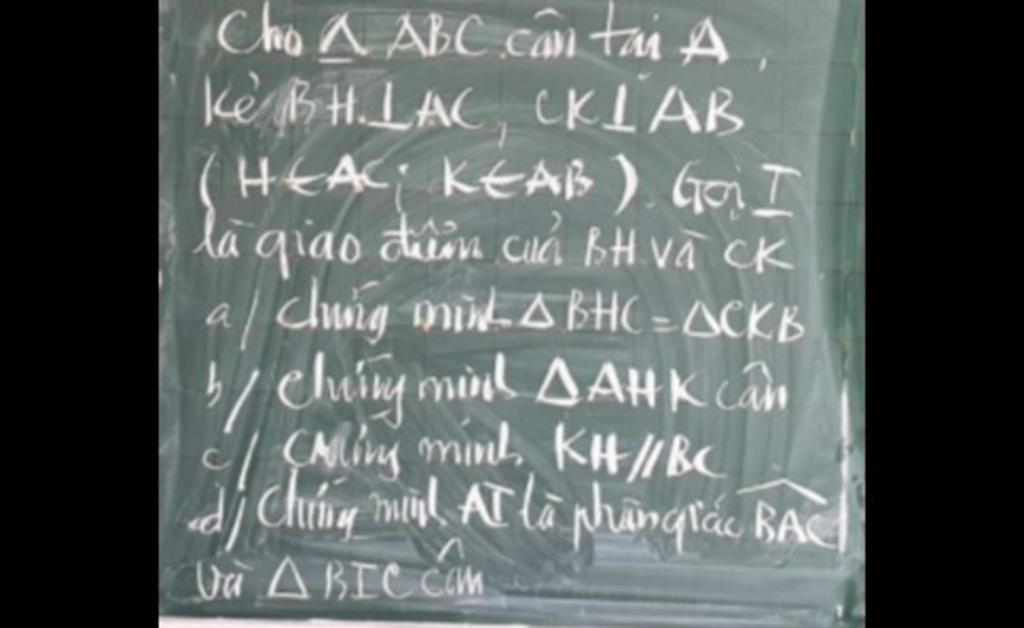 Cho Δ ABC cân tại A,
Kẻ BH ⊥ AC, CK ⊥ AB
(H ∈ AC; K ∈ AB). Gọi I
là giao điểm của BH và CK
a/ Chứng minh Δ BHC = Δ CKB
b/ Chứng minh Δ AHK cân
c/ Chứng minh KH // BC
d/ Chứng minh AI là phân giác \widehat{BAC}
và Δ BIC cân